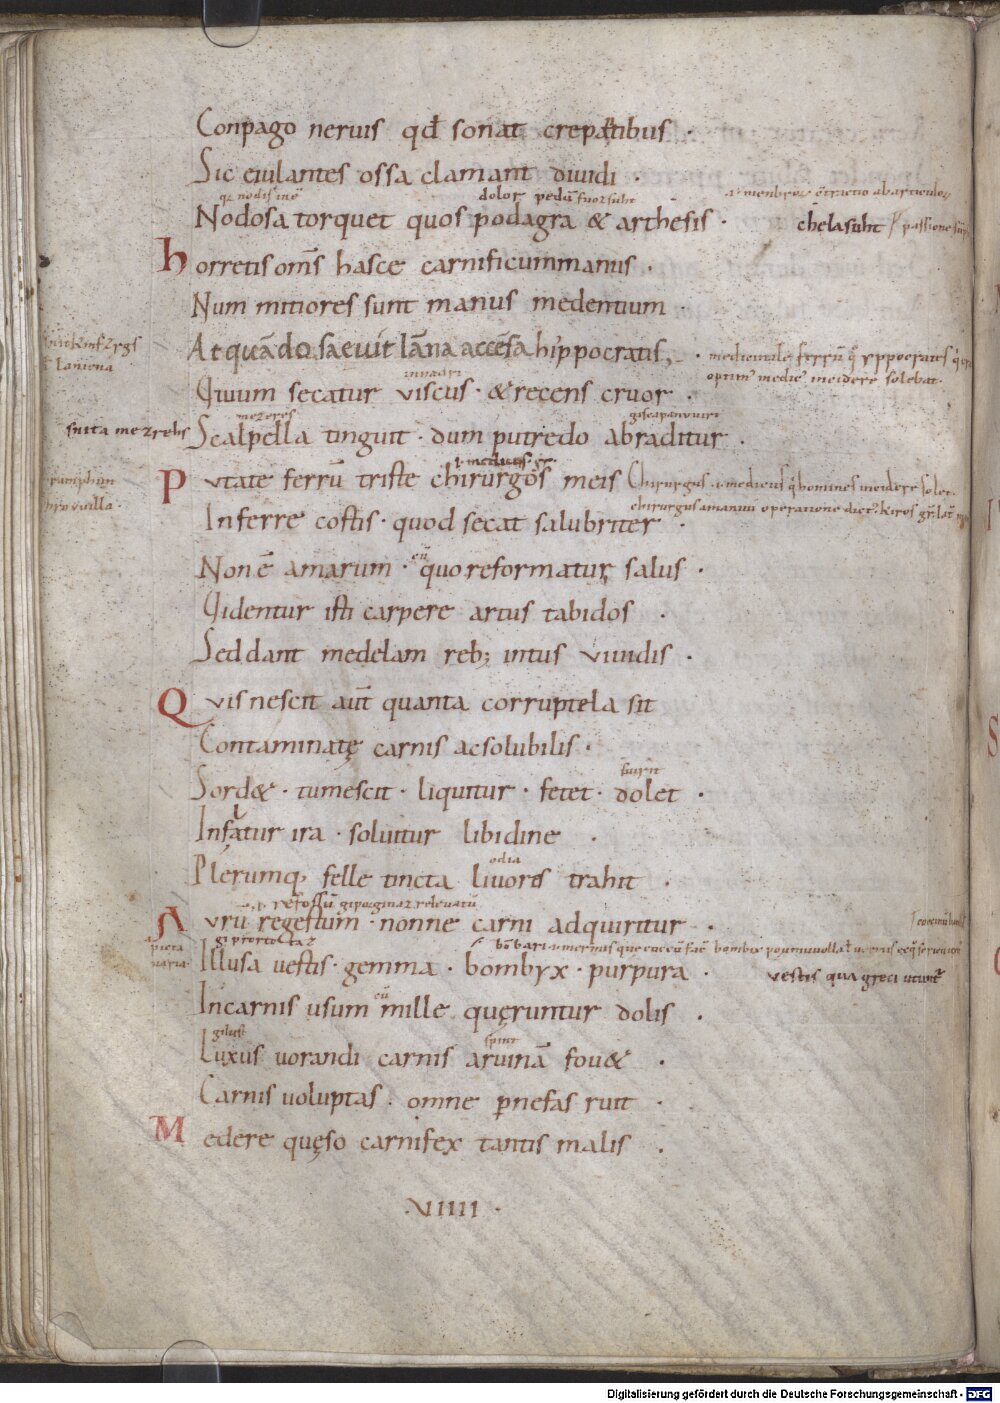 Conpago neruis qđ sonat crepantibus ·
Sic eiulantes ossa clamant diuidi ·
dolor pedū
Nodosa torquet quos podagra & arthesis · chelasuht passione
horretis om̄s hasce carnificum manus ·
Num mitiores sunt manus medentium ·
Laniena
At quando saeuit laniena accēsa hippocratis, · medicinale ferrū
optim' medic' incidere solebat ·
Quum secatur uiscus · & recens cruor ·
mezeres giscapanuuirt
suita mezrehs Scalpella tinguit · dum putredo abraditur ·
.i. medicus · gr ·
Putate ferrū triste chirurgos meis Chirurgus · i · medicus q̄ homines incidere solet ·
chirurgus a manuū operatione dict' · kiros gr̄
Inferre costis · quod secat salubriter ·
Non ē amarum · quo reformatur salus ·
Uidentur isti carpere artus tabidos ·
Sed dant medelam reb; intus uiuidis ·
Quis nescit aut̄ quanta corruptela sit
Contaminatę carnis ac solubilis ·
suirit
Sord& · tumescit · liquitur · fetet · dolet ·
Inflatur ira · soluitur libidine ·
odia
Plerumq, felle tincta liuores trahit ·
Aurū regestum · nonne carni adquiritur ·
Illusa uestis · gemma · bombyx · purpura · uestis qua greci utunt̄
In carnis usum mille quęruntur dolis ·
spint
Luxus uorandi carnis aruinā fou& ·
Carnis uoluptas · omne p̄ nefas ruit ·
Medere quęso carnifex tantis malis ·
· VIIII ·
Digitalisierung gefördert durch die Deutsche Forschungsgemeinschaft - DFG